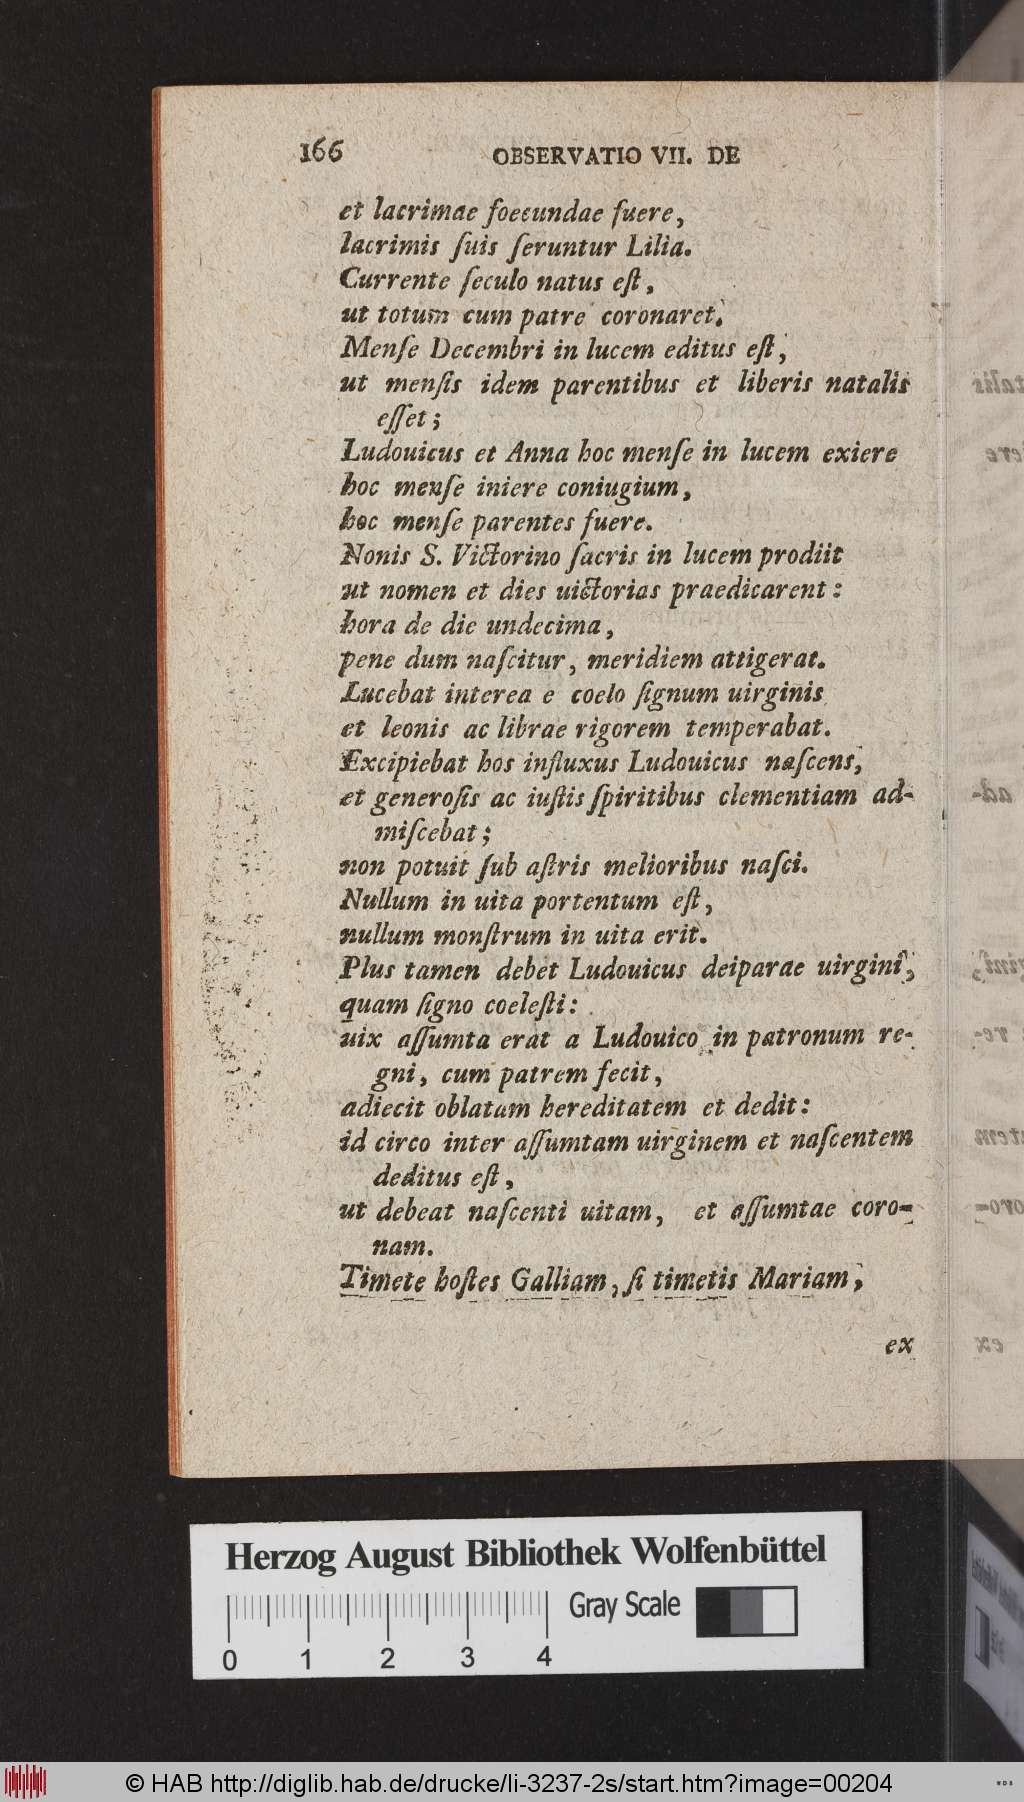 166 OBSERVATIO VII. DE
et lacrimae foecundae fuere,
lacrimis ſuis ſeruntur Lilia.
Currente ſeculo natus eſt,
ut totum cum patre coronaret.
Menſe Decembri in lucem editus eſt,
ut menſis idem parentibus et liberis natalis
eſſet;
Ludouicus et Anna hoc menſe in lucem exiere
hoc menſe iniere coniugium,
hoc menſe parentes fuere.
Nonis S. Victorino ſacris in lucem prodiit
ut nomen et dies uictorias praedicarent:
hora de die undecima,
pene dum naſcitur, meridiem attigerat.
Lucebat interea e coelo ſignum uirginis
et leonis ac librae rigorem temperabat.
Excipiebat hos influxus Ludouicus naſcens,
et generoſis ac iuſtis ſpiritibus clementiam ad-
miſcebat;
non potuit ſub aſtris melioribus naſci.
Nullum in uita portentum eſt,
nullum monſtrum in uita erit.
Plus tamen debet Ludouicus deiparae uirgini,
quam ſigno coeleſti:
uix aſſumta erat a Ludouico in patronum re-
gni, cum patrem fecit,
adiecit oblatam hereditatem et dedit:
id circo inter aſſumtam uirginem et naſcentem
deditus eſt,
ut debeat naſcenti uitam, et aſſumtae coro-
nam.
Timete hoſtes Galliam, ſi timetis Mariam,
ex
Herzog August Bibliothek Wolfenbüttel
Gray Scale
0 1 2 3 4
© HAB http://diglib.hab.de/drucke/li-3237-2s/start.htm?image=00204